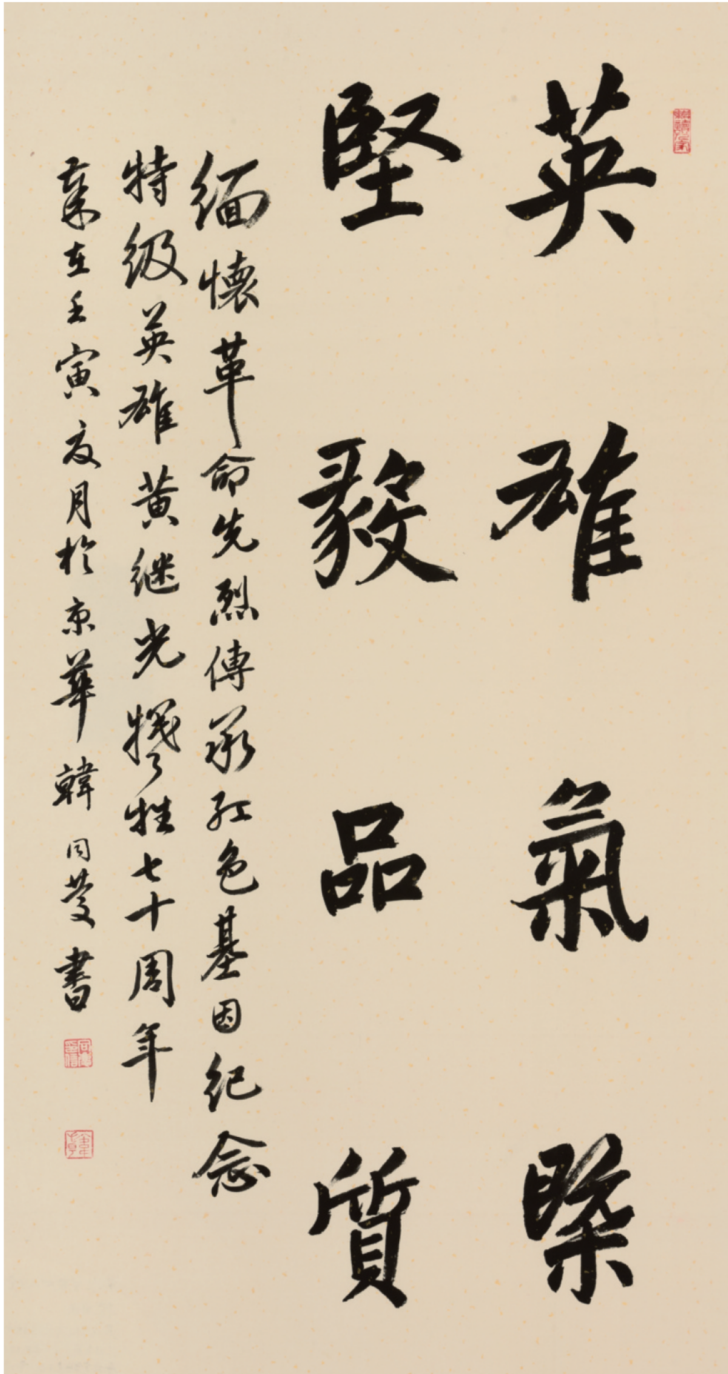 英雄氣槩
堅毅品質
緬懷革命先烈傳承紅色基因紀念
特级英雄黄继光犧牲七十周年
歲在壬寅夏月於京華韓同慶書